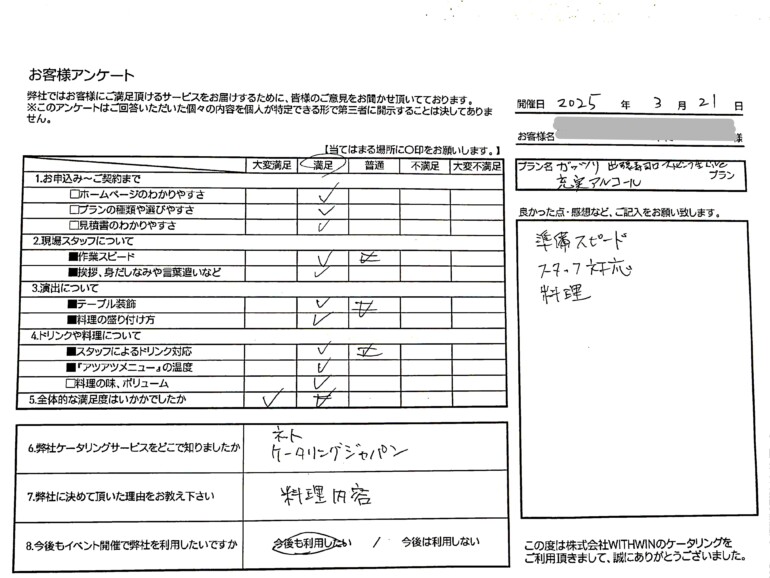 お客様アンケート
弊社ではお客様にご満足頂けるサービスをお届けするために、皆様のご意見をお聞かせ頂いてております。
※このアンケートはご回答いただいた個々の内容を個人が特定できる形で第三者に開示することは決してありま
せん。
開催日 2025 年 3 月 21 日
お客様名 様
【当てはまる場所に〇印をお願いします。】
大変満足 満足 普通 不満足 大変不満足
プラン名 ガッツリ Live
充実アルコール プラン
1.お申込み～ご契約まで
□ホームページのわかりやすさ
□プランの種類や選びやすさ
□見積書のわかりやすさ
2.現場スタッフについて
■作業スピード
■挨拶、身だしなみや言葉遣いなど
3.演出について
■テーブル装飾
■料理の盛り付け方
4.ドリンクや料理について
■スタッフによるドリンク対応
■『アツアツメニュー』の温度
□料理の味、ボリューム
5.全体的な満足度はいかかでしたか
良かった点・感想など、ご記入をお願い致します。
準備スピード
スタッフ対応
料理
6.弊社ケータリングサービスをどこで知りましたか
ネット
ケータリングジャパン
7.弊社に決めて頂いた理由をお教え下さい
料理内容
8.今後もイベント開催で弊社を利用したいですか
今後も利用したい / 今後は利用しない
この度は株式会社WITHWINのケータリングを
ご利用頂きまして、誠にありがとうございました。